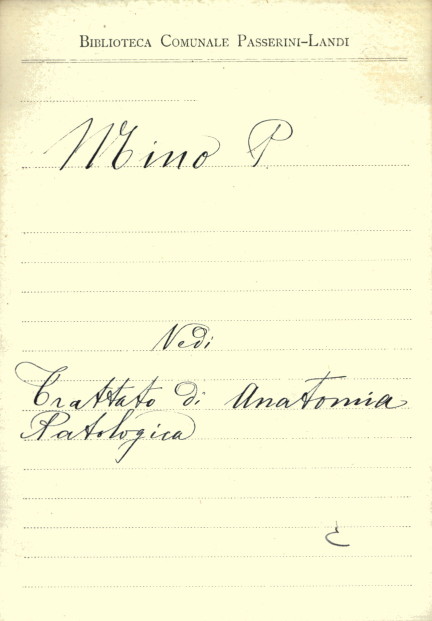 BIBLIOTECA COMUNALE PASSERINI-LANDI
Mino P.
Vedi
Trattato di Anatomia
Patologica